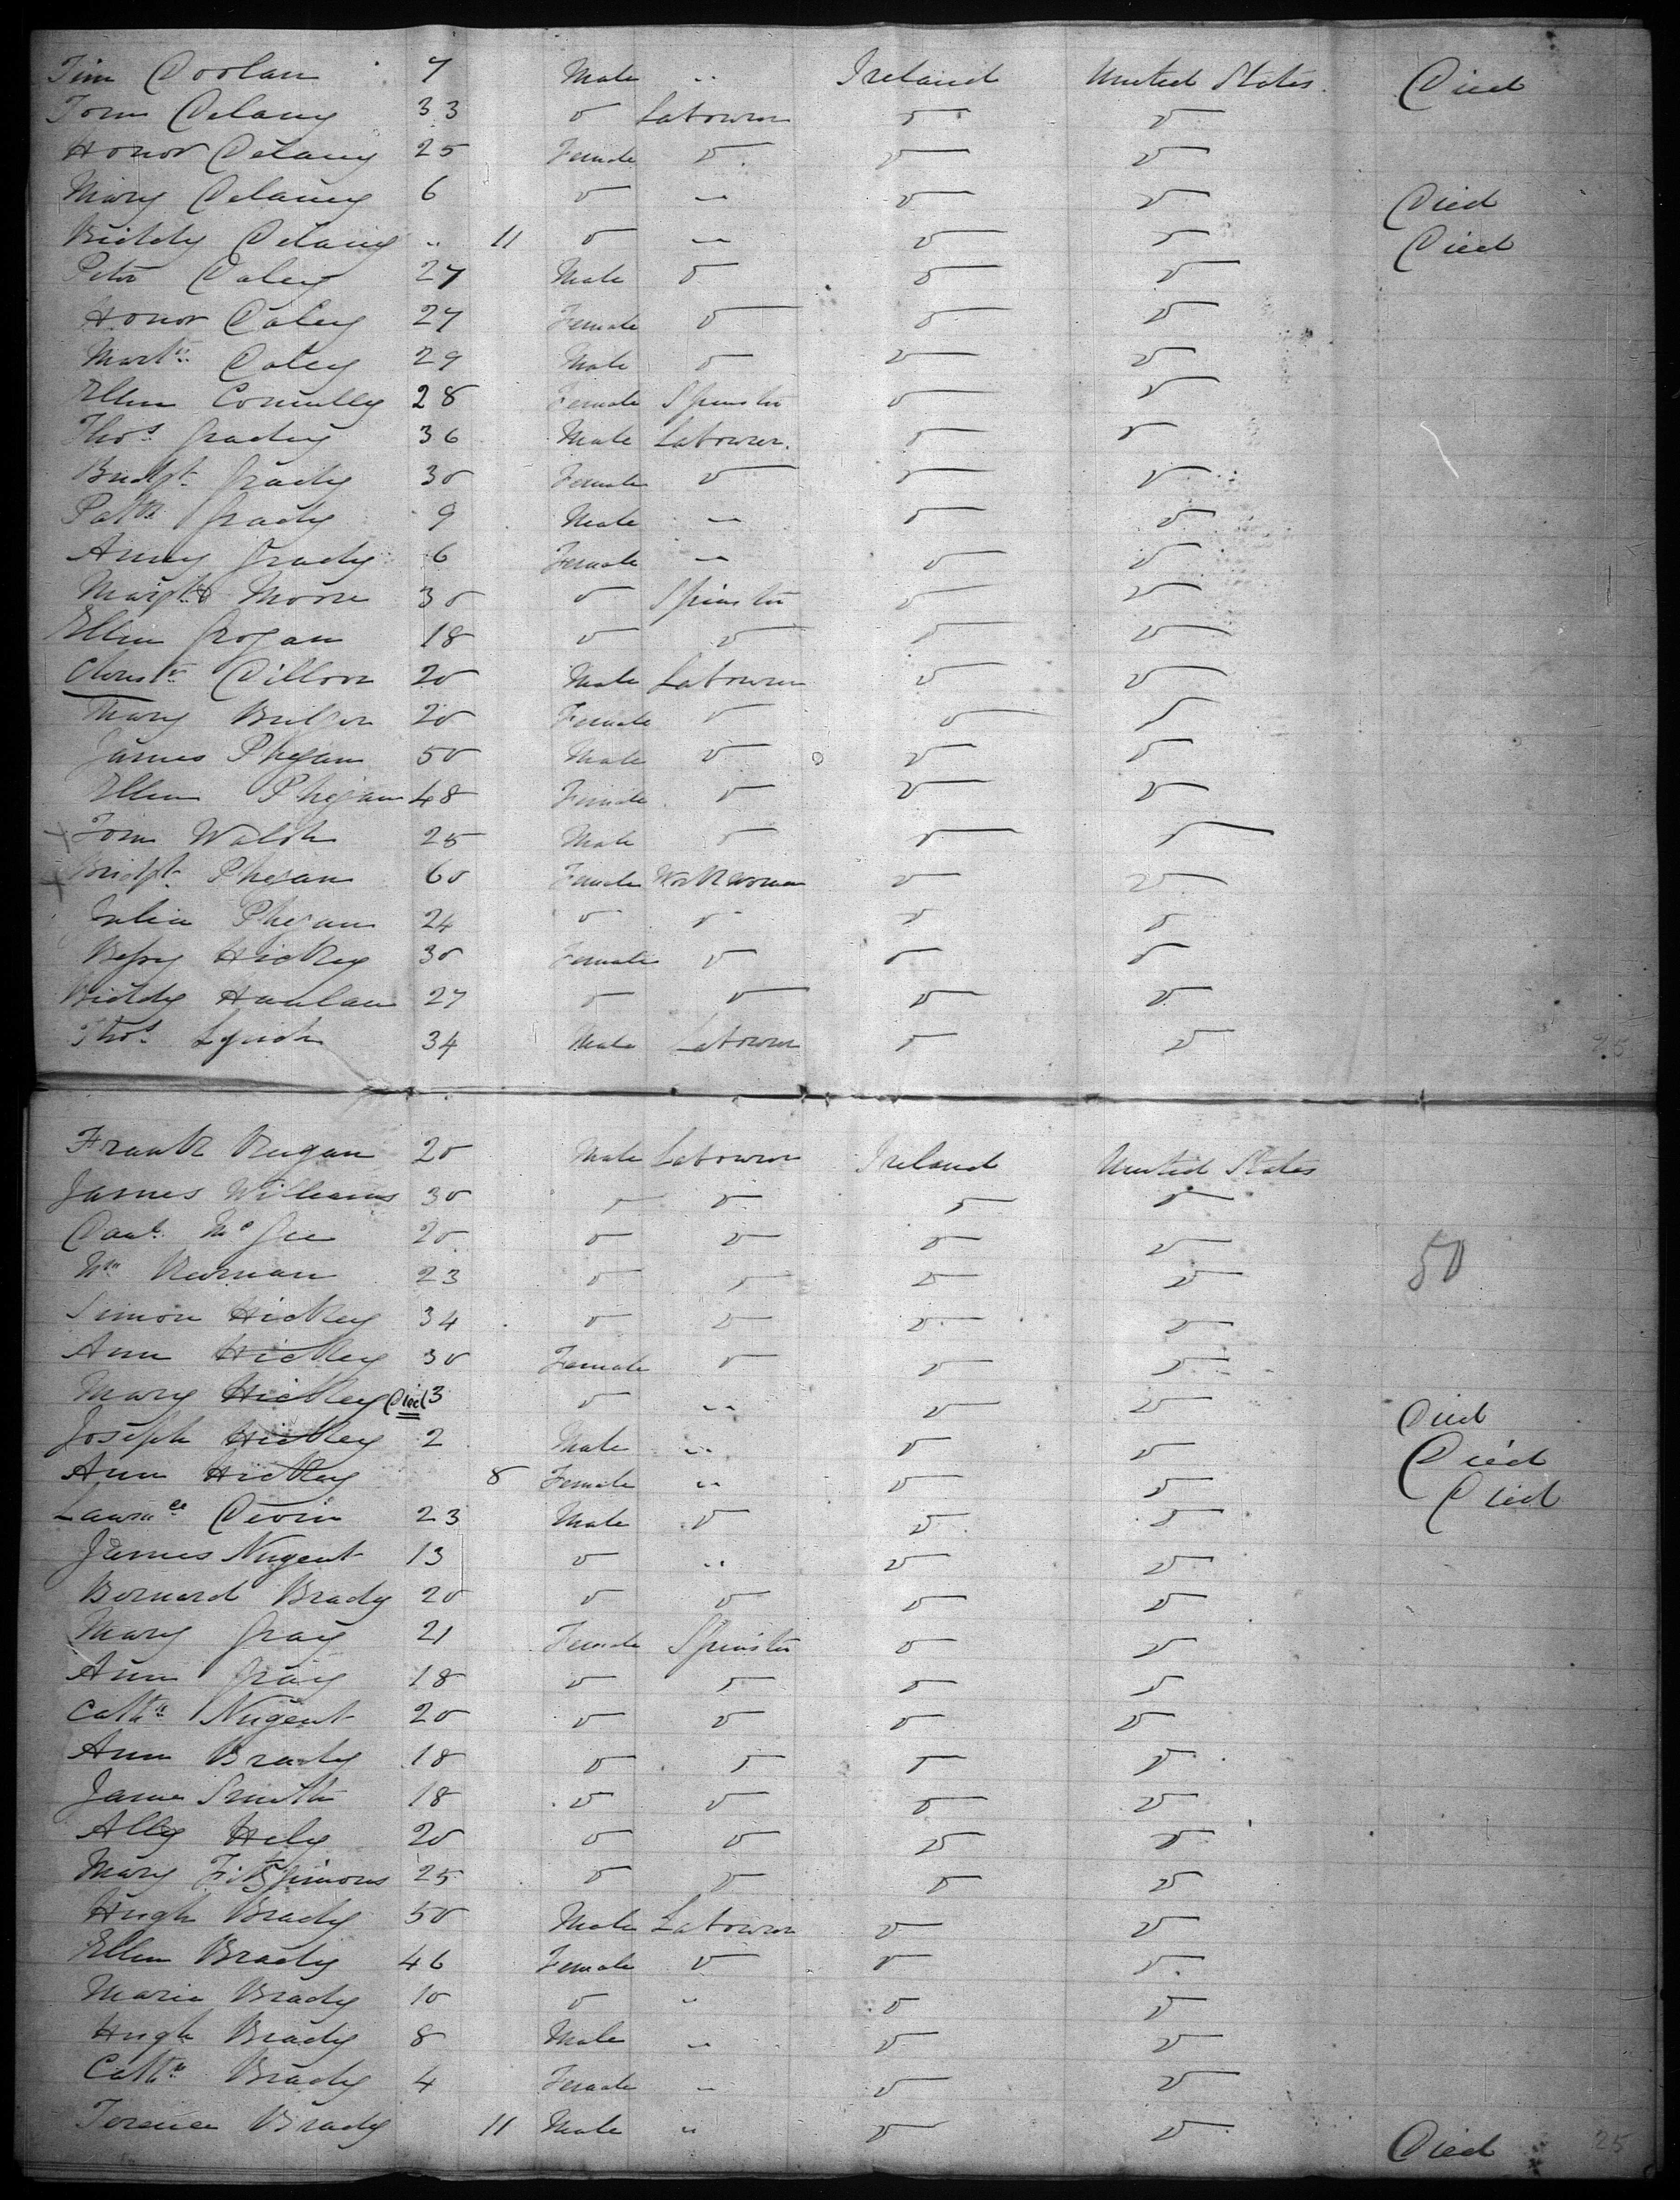 Tim Doolan 7 Male " Ireland United States Died
John Delany 33 do Labourer do do
Honor Delany 25 Female do do do
Mary Delany 6 do " do do Died
Biddy Delany " 11 do " do do Died
Peter Daley 27 Male do do do
Honor Daley 27 Female do do do
Martn Daley 29 Male do do do
Ellen Connelly 28 Female Spinster do do
Thos Grady 36 Male Labourer. do do
Bridgt Grady 30 Female do do do
Patk Grady 9 Male " do do
Anny Grady 6 Female " do do
Margt Moore 30 do Spinster do do
Ellen Grogan 18 do do do do
Christr Dillon 20 Male Labourer do do
Mary 20 Female do do do
James Phegan 50 Male do do do
Ellen Phegan 48 Female do do do
John Walsh 25 Male do do do
Bridgt Phegan 60 Female Workwoman do do
Julia Phegan 24 do do do do
Bessy Hickey 30 Female do do do
Biddy Hanlan 27 do do do do
Thos Lynch 34 Male Labourer do do 25
Frank 20 Male Labourer Ireland United States
James Williams 30 do do do do
Danl McGee 20 do do do do 50
Wm 23 do do do do
Simon Hickey 34 do do do do
Ann Hickey 30 Female do do do
Mary Hickey Died 3 do " do do Died
Joseph Hickey 2 Male " do do Died
Ann Hickey 8 Female " do do Died
Lawrnce Devin 23 Male do do do
James Nugent 13 do " do do
Bernard Brady 20 do do do do
Mary Gray 21 Female Spinster do do
Ann Gray 18 do do do do
Cathn Nugent 20 do do do do
Ann Brady 18 do do do do
Jane Smith 18 do do do do
Ally Hely 20 do do do do
Mary Fitzsimons 25 do do do do
Hugh Brady 50 Male Labourer do do
Ellen Brady 46 Female do do do
Maria Brady 10 do " do do
Hugh Brady 8 Male " do do
Cathn Brady 4 Female " do do
Terence Brady 11 Male " do do Died 25